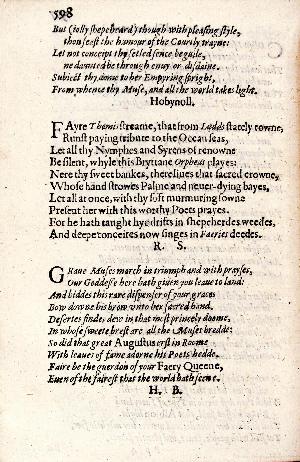 598
But (iolly shepeheard) though with pleasing style,
thou feast the humour of the Courtly trayne:
Let not conceipt thy setled sence beguile,
ne daunted be through enuy or disdaine.
Subiect thy dome to her Empyring spright,
From whence thy Muse, and all the world takes light.
Hobynoll.
FAyre Thamis streame, that from Ludds stately towne,
Runst paying tribute to the Ocean seas,
Let all thy Nymphes and Syrens of renowne
Be silent, whyle this Bryttane Orpheus playes:
Nere thy sweet bankes, there liues that sacred crowne,
Whose hand strowes Palme and neuer-dying bayes,
Let all at once, with thy soft murmuring sowne
Present her with this worthy Poets prayes.
For he hath taught hye drifts in shepeherdes weedes,
And deepe conceites now singes in Faeries deedes.
R. S.
GRaue Muses march in triumph and with prayses,
Our Goddesse here hath giuen you leaue to land:
And biddes this rare dispenser of your graces
Bow downe his brow vnto her sacred hand,
Desertes findes dew in that most princely doome,
In whose sweete brest are all the Muses bredde:
So did that great Augustus erst in Roome
With leaues of fame adorne his Poets hedde.
Faire be the guerdon of your Faery Queene,
Euen of the fairest that the world hath seene.
H. B.